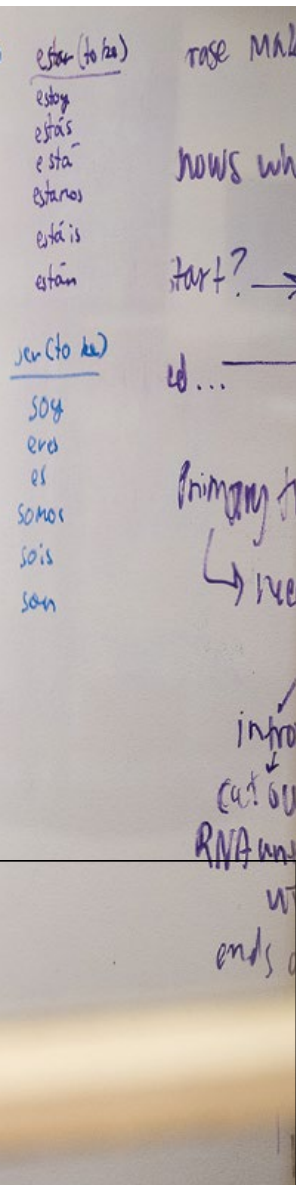 estar (to be)
estoy
estás
está
estamos
estáis
están
ser (to be)
soy
eres
es
somos
sois
son
rase
hows
tart? →
ed...
Primary
intro
cut
RNA
ends